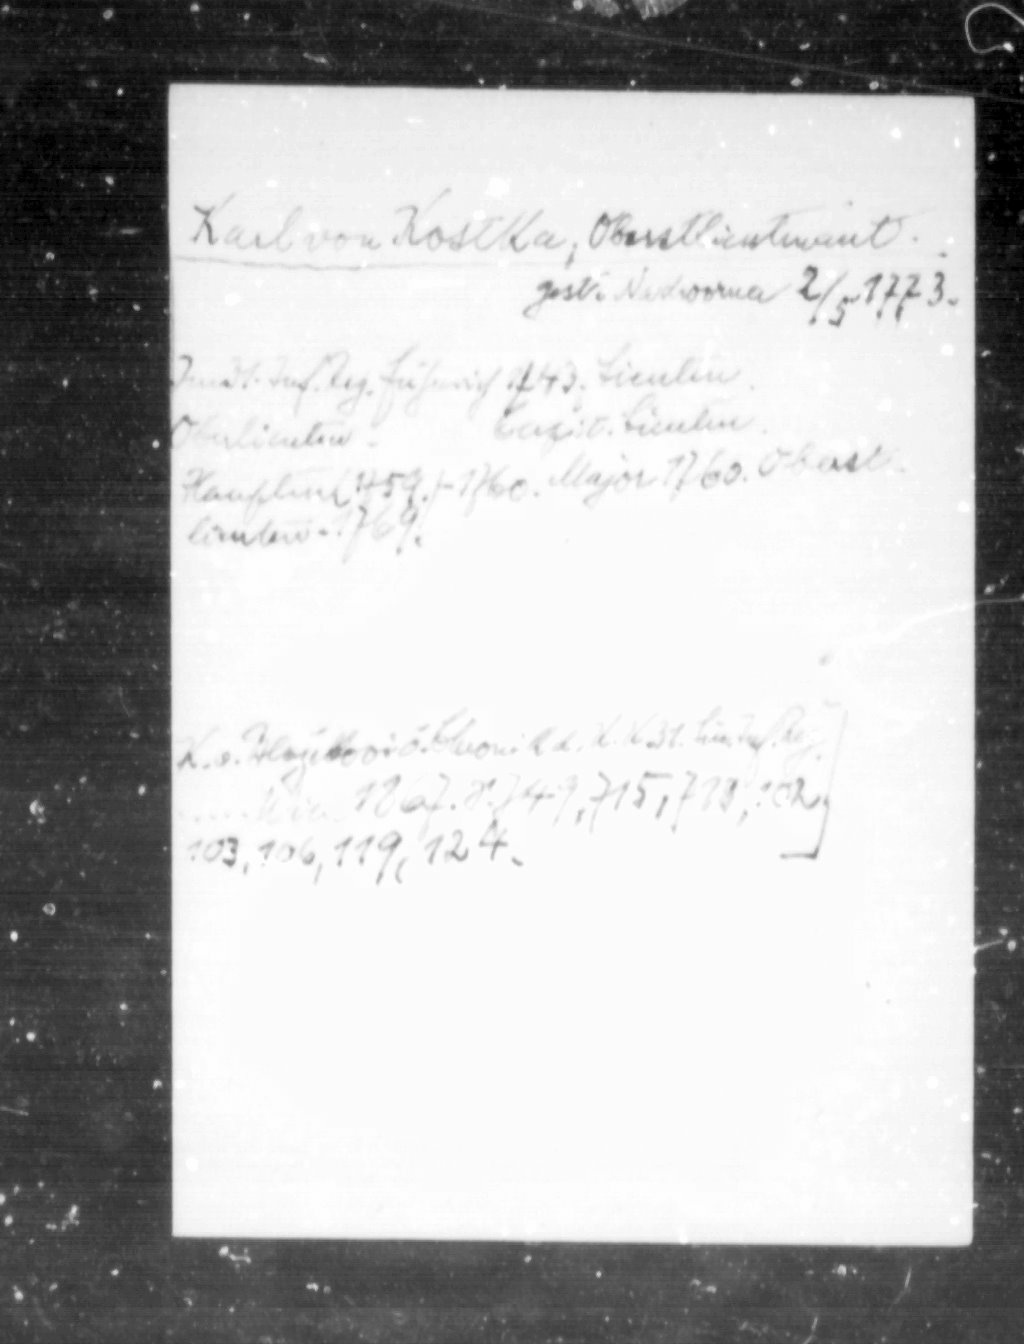 Karl von Kostka, Oberstlieutenant.
gest. Nadwórna 2/5 1773.
Im 31. Inf. Reg. Fähnrich 1743. Lieuten.
Oberlieuten. Capit. Lieuten.
Hauptm. (1759.)-1760. Major 1760. Oberst-
lieuten. 1769.
K. v. Blažeković. Chronik d. K. K. 31. Lin. Inf. Reg.
Wien 1867. 715, 102,
103, 106, 119, 124.